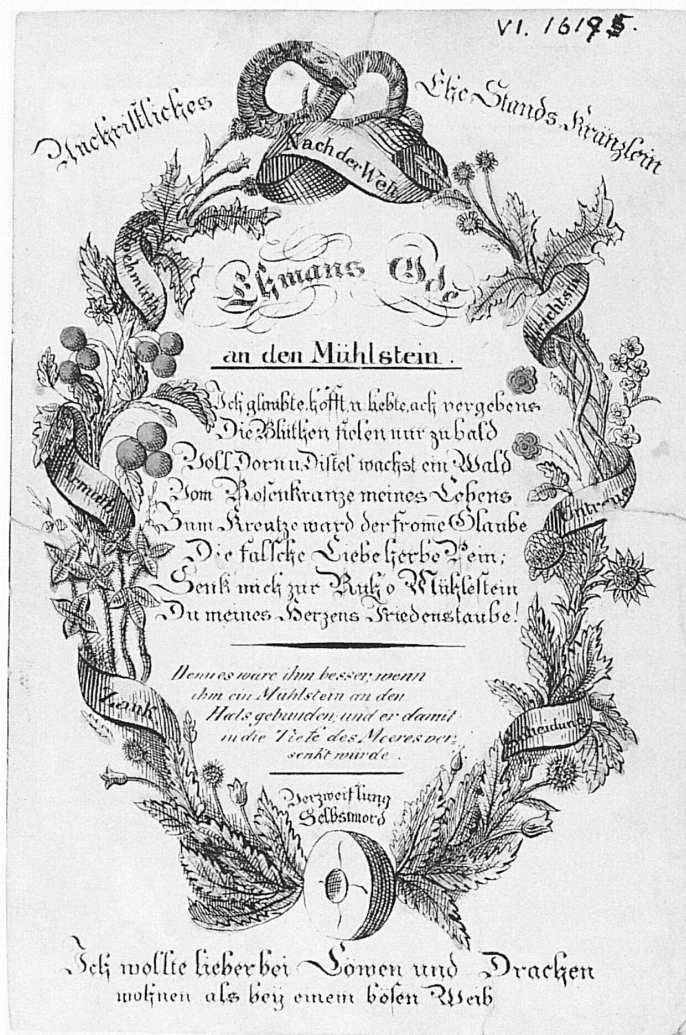 VI. 16195.
Unchristliches Ehe-Stands Kränzlein
Nach der Weh
Wehmuth
Leichtsinn
Ehmans Ode
an den Mühlstein.
Ich glaubte, hofft, u. liebte, ach vergebens
Die Blüthen fielen nur zu bald
Voll Dorn u. Distel wachst ein Wald
Vom Rosenkranze meines Lebens
Zum Kreutze ward der from̄e Glaube
Die falsche Liebe herbe Pein;
Senk mich zur Ruh o Mühlestein
Du meines Herzens Friedenstaube!
Armuth
Untreue
Zank
Scheidung
Denn es ware ihm besser, wenn
ihm ein Muhlstein an den
Hals gebunden, und er damit
in die Tiefe des Meeres ver,
senkt würde.
Verzweiflung
Selbstmord
Ich wollte lieber bei Löwen und Drachen
wohnen als bey einem bösen Weib